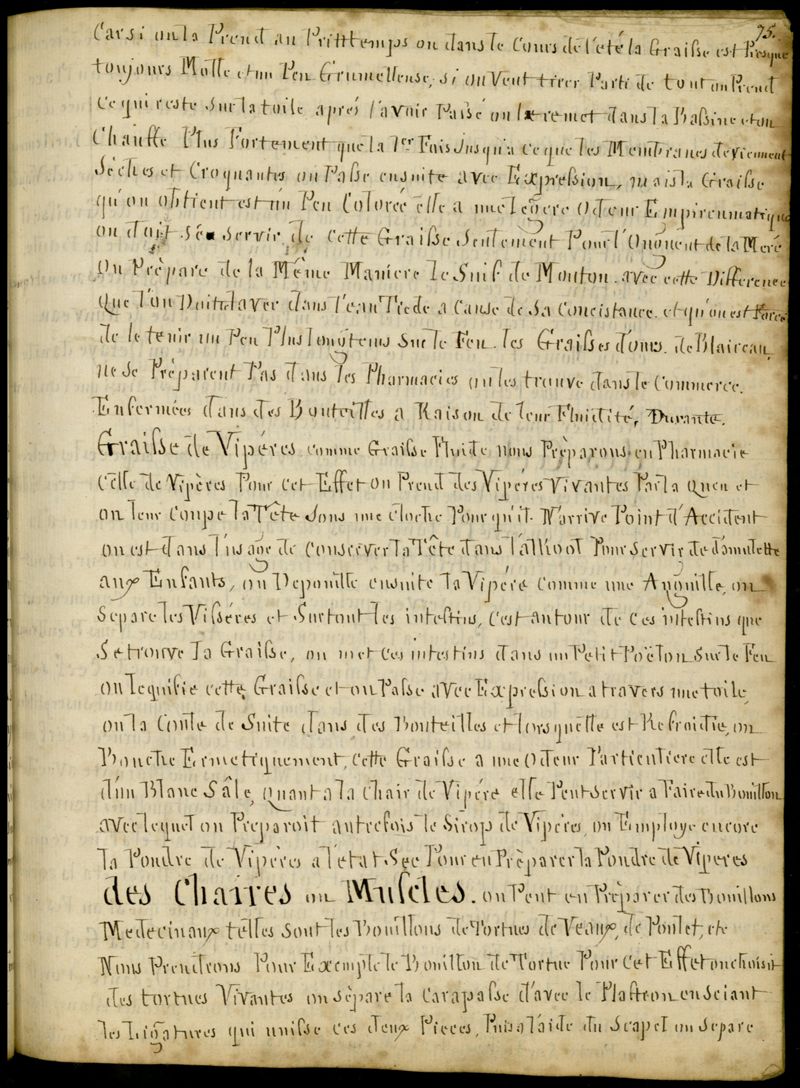 75.
Car si on la Prend au Printtemps ou dans le Cours de l'eté la Graisse est Presque
toujours Molle et un Peu Grumelleuse, si on Veut tirer Parti de tout on Prend
Ce qui reste Sur la toile aprés l'avoir Passé on le remet dans la Bassine et on
Chauffe Plus Fortement que la 1er Fois Jusqu'a ce que les Membranes deviennent
Seches et Croquantes on Passe ensuite avec Expression, mais la Graisse
qu'on obtient est un Peu Colorée elle a une legere Odeur Empireumatique
on doit Se Servir de Cette Graisse Seulement Pour l'Onguent de la Meré
On Prèpare de la Même Maniere le Suif de Mouton. avec cette Difference
Que l'on Doit laver dans l'eau Tiede a Cause de Sa Concistance. et qu'on est Forcé
de le tenir un Peu Plus longtems Sur le Feu. les Graisses d'ours. de Blaireau
ne se Prèparent Pas dans les Pharmacies on les trouve dans le Commerce.
Enfermées dans des Bouteilles a Raison de leur Fluidité, Durante.
Graisse de Vipéres. comme Graisse Fluide nous Prèparons en Pharmacie
Celle de Vipères Pour Cet Effet on Prend des Vipéres Vivantes Par la Queu et
on leur Coupe la Tête Sous une cloche Pour qu'il N'arrive Point d'Accident
on est dans l'usage de Conscèver la Tête dans l'alkool Pour Servir de d'omulette
aux Enfants, on Depouille ensuite la Vipéré Comme une Anguille, on
Separe les Visséres et Surtout les intestins, C'est autour de Ces intestins que
Se trouve la Graisse, on met ces intestins dans un Petit Poëlon Sur le Feu
on lequifie cette Graisse et on Passe avec Expression a travers une toile
on la Coule de Suite dans des Bouteilles et lorsquelle est Refroidie, on
Bouche Ermetiquement, Cette Graisse a une Odeur Particuliere elle est
d'un Blanc Sâle, quant a la Chair de Vipéré elle Peut servir a Faire du Bouillon
avec lequel on Preparoit autrefois le Sirop de Vipéres, on Employe encore
la Poudre de Vipères a l'état Sec Pour en Prèparer la Poudre de Viperes
des Chaires ou Muscles. on Peut en Prèparer des Bouillons
Medecinaux telles Sont les Bouillons de Tortues de Veaux, de Poulet, etc
Nous Prendrons Pour Exemple le Bouillon de Tortue Pour Cet Effet on choisit
des tortues Vivantes on sèpare la Carapasse d'avec le Plastron en Sciant
les Ligatures qui unisse ces deux Pieces, Puis a l'aide du Scapel on Separe